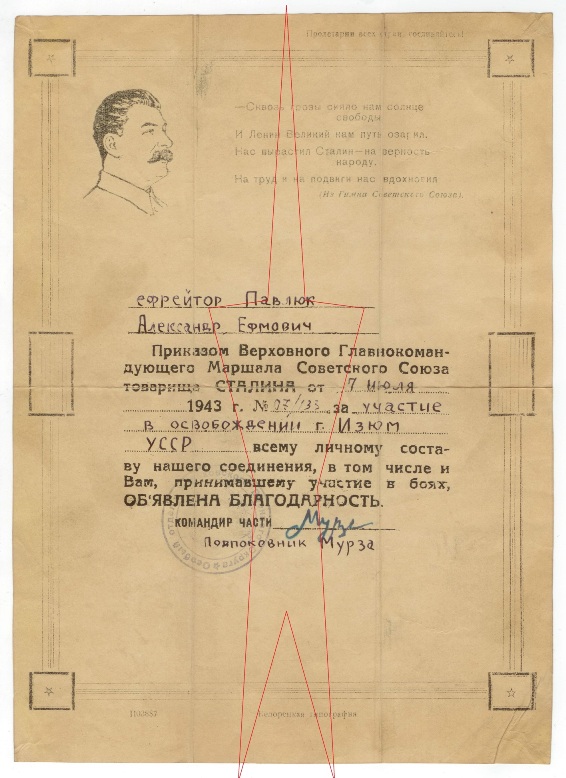 Пролетарии всех стран, соединяйтесь!
—Сквозь грозы сияло нам солнце
свободы
И Ленин Великий нам путь озарил.
Нас вырастил Сталин—на верность
народу.
На труд и на подвиги нас вдохновил
(Из Гимна Советского Союза).
ефрейтор Павлюк
Александр Ефмович
Приказом Верховного Главнокоман-
дующего Маршала Советского Союза
товарища СТАЛИНА от 7 июля
1943 г. № за участие
в освобождении г. Изюм
УССР всему личному соста-
ву нашего соединения, в том числе и
Вам, принимавшему участие в боях,
ОБ'ЯВЛЕНА БЛАГОДАРНОСТЬ.
КОМАНДИР ЧАСТИ Мурза
Полполковник Мурза
типография